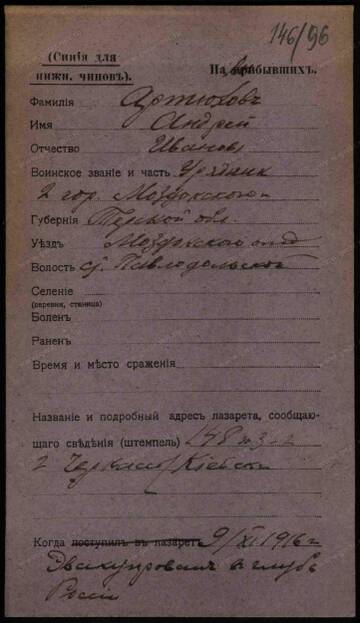 146/96
(Синія для
нижн. чиновъ).
На выбывшихъ.
Фамилія Артюховъ
Имя Андрей
Отчество Иванов
Воинское званіе и часть Урядник
2 гор. Моздокского
Губернія Терской обл
Уѣздъ Моздокского отд
Волость ст. Павлодольской
Селеніе
(деревня, станица)
Боленъ
Раненъ
Время и мѣсто сраженія
Названіе и подробный адресъ лазарета, сообщаю-
щаго свѣдѣнія (штемпель) 178
г Черкассы Кіевск
Когда поступилъ въ лазаретъ 9/XI 1916 г
Эвакуирован в глубь
России